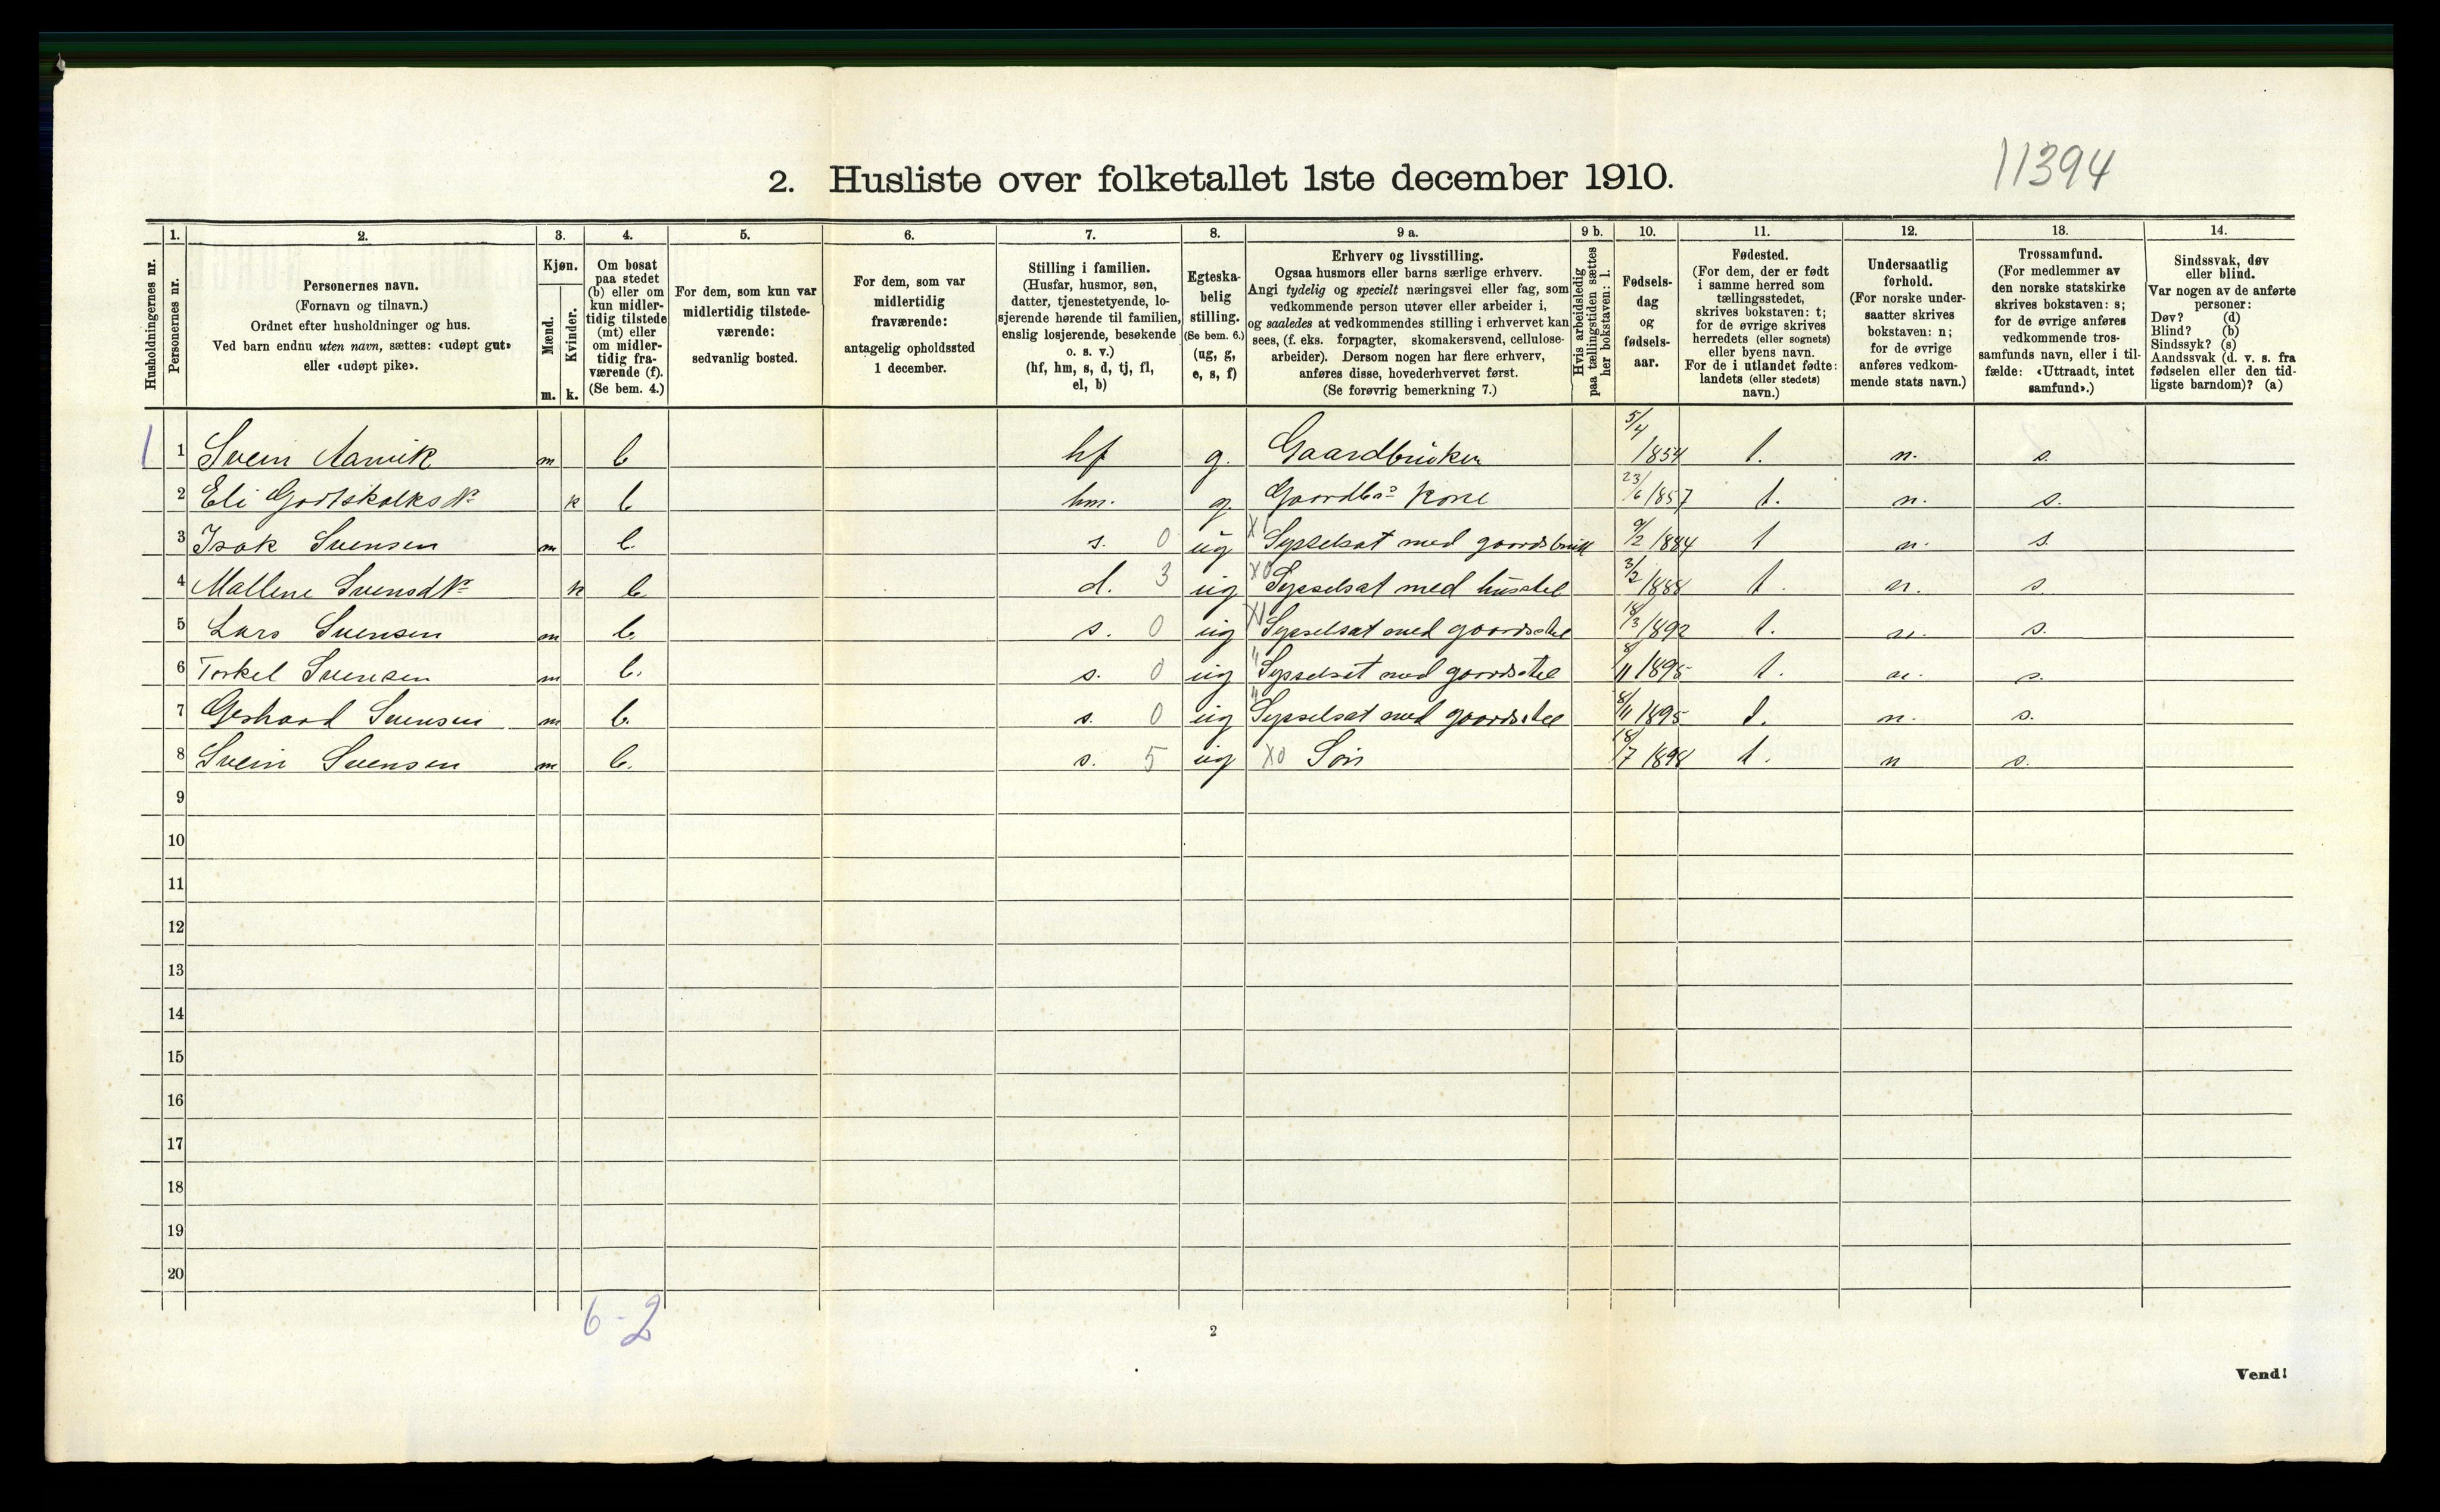 11394
2. Husliste over folketallet 1ste december 1910.
Husholdningernes nr.
1. Personernes nr.
2. Personernes navn. (Fornavn og tilnavn.) Ordnet efter husholdninger og hus. Ved barn endnu uten navn, sættes: «udøpt gut» eller «udøpt pike».
3. Kjøn. Mænd. m. Kvinder. k.
4. Om bosat paa stedet (b) eller om kun midler-tidig tilstede (mt) eller om midler-tidig fra-værende (f). (Se bem. 4.)
5. For dem, som kun var midlertidig tilstede-værende: sedvanlig bosted.
6. For dem, som var midlertidig fraværende: antagelig opholdssted 1 december.
7. Stilling i familien. (Husfar, husmor, søn, datter, tjenestetyende, lo-sjerende hørende til familien, enslig losjerende, besøkende o. s. v.) (hf, hm, s, d, tj, fl, el, b)
8. Egteska-belig stilling. (Se bem. 6.) (ug, g, e, s, f)
9 a. Erhverv og livsstilling. Ogsaa husmors eller barns særlige erhverv. Angi tydelig og specielt næringsvei eller fag, som vedkommende person utøver eller arbeider i, og saaledes at vedkommendes stilling i erhvervet kan sees, (f. eks. forpagter, skomakersvend, cellulose-arbeider). Dersom nogen har flere erhverv, anføres disse, hovederhvervet først. (Se forøvrig bemerkning 7.)
9 b. Hvis arbeidsledig paa tællingstiden sættes her bokstaven: l.
10. Fødsels-dag og fødsels-aar.
11. Fødested. (For dem, der er født i samme herred som tællingsstedet, skrives bokstaven: t; for de øvrige skrives herredets (eller sognets) eller byens navn. For de i utlandet fødte: landets (eller stedets) navn.)
12. Undersaatlig forhold. (For norske under-saatter skrives bokstaven: n; for de øvrige anføres vedkom-mende stats navn.)
13. Trossamfund. (For medlemmer av den norske statskirke skrives bokstaven: s; for de øvrige anføres vedkommende tros-samfunds navn, eller i til-fælde: «Uttraadt, intet samfund».)
14. Sindssvak, døv eller blind. Var nogen av de anførte personer: Døv? (d) Blind? (b) Sindssyk? (s) Aandssvak (d. v. s. fra fødselen eller den tid-ligste barndom)? (a)
1 1 Svein Aarvik m b hf g. Gaardbruker 5/4 1854 t. n. s.
2 Eli Godtskalksdtr k b hm. g. Gaardbrs kone 23/6 1857 t. n. s.
3 Isak Svensen m b. s. 0 ug X1 Sysselsat med gaardsbruk 9/2 1884 t n. s.
4 Mallene Svensdtr k b. d. 3 ug X0 Sysselsat med husstel 3/2 1888 t. n. s.
5 Lars Svensen m b. s. 0 ug X1 Sysselsat med gaardsstel 18/3 1892 t. n. s.
6 Torkel Svensen m b. s. 0 ug " Sysselsat med gaardsstel 8/11 1895 t. n. s.
7 Gerhard Svensen m b. s. 0 ug " Sysselsat med gaardsstel 8/11 1895 t. n. s.
8 Svein Svensen m b. s. 5 ug X0 Søn 18/7 1898 t. n s.
9
10
11
12
13
14
15
16
17
18
19
20
6-2
2
Vend!